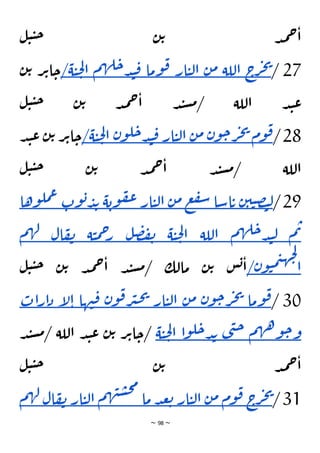 أحمد بن حنبل
27/ يخرج الله من النار قوما فيدخلهم الجنة/جابر بن
عبد الله /مسند أحمد بن حنبل
28/ قوم يخرجون من النار فيدخلون الجنة/جابر بن عبد
الله /مسند أحمد بن حنبل
29/ ليصيبن ناسا سفع من النار عقوبة بذنوب عملوها
ثم ليدخلهم الله الجنة بفضل رحمته يقال لهم
الجهنميون/أنس بن مالك /مسند أحمد بن حنبل
30/ قوما يخرجون من النار يحترقون فيها إلا دارات
وجوههم حتى يدخلوا الجنة/جابر بن عبد الله /مسند
أحمد بن حنبل
31/ يخرج قوم من النار بعد ما محشتهم النار يقال لهم
~ 98 ~